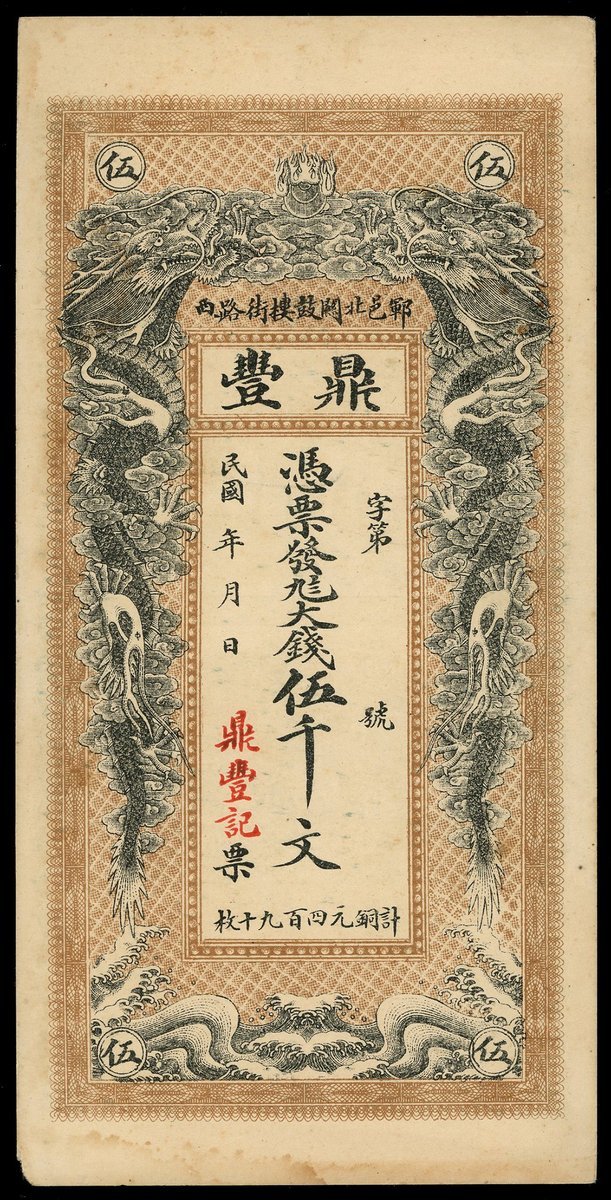 伍
伍
邑北関鼓樓街路西
鼎豐
字第 號
憑票發 大錢伍千文
民國 年 月 日
鼎豐記票
計銅元四百九十枚
伍
伍